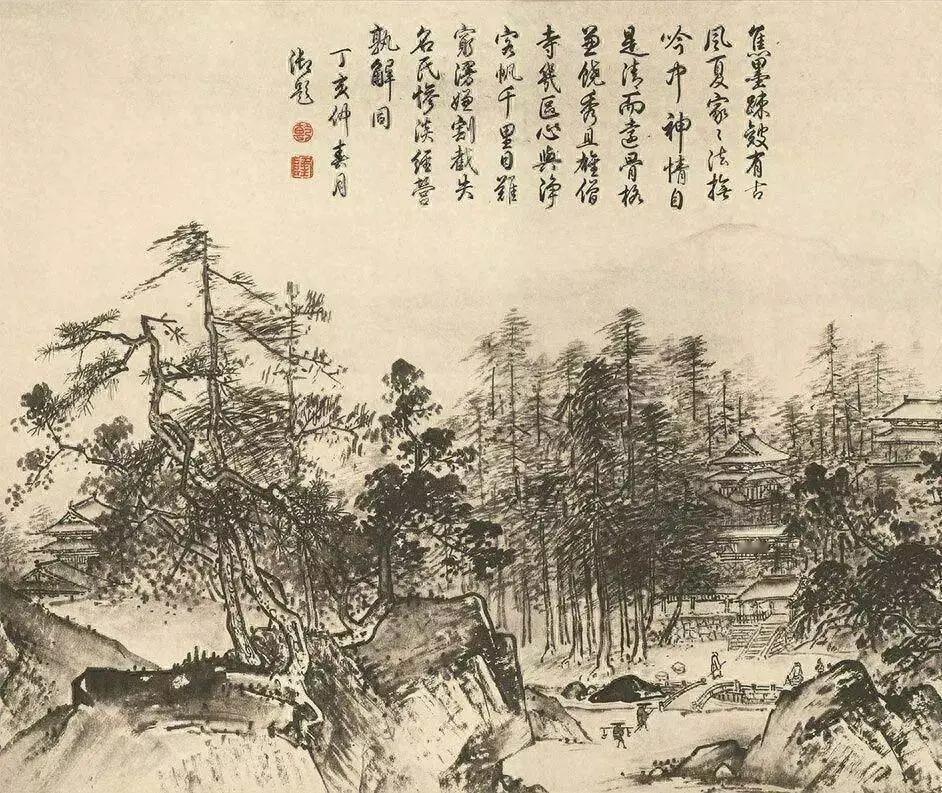 焦墨疎皴有古
風夏家〻法撫
吟中神情自
是清而遠骨格
兼饒秀且雄僧
寺幾區心與淨
客帆千里目難
窮漫嫌割截失
名氏慘淡經營
孰解同
丁亥仲春月
御題
乾
隆